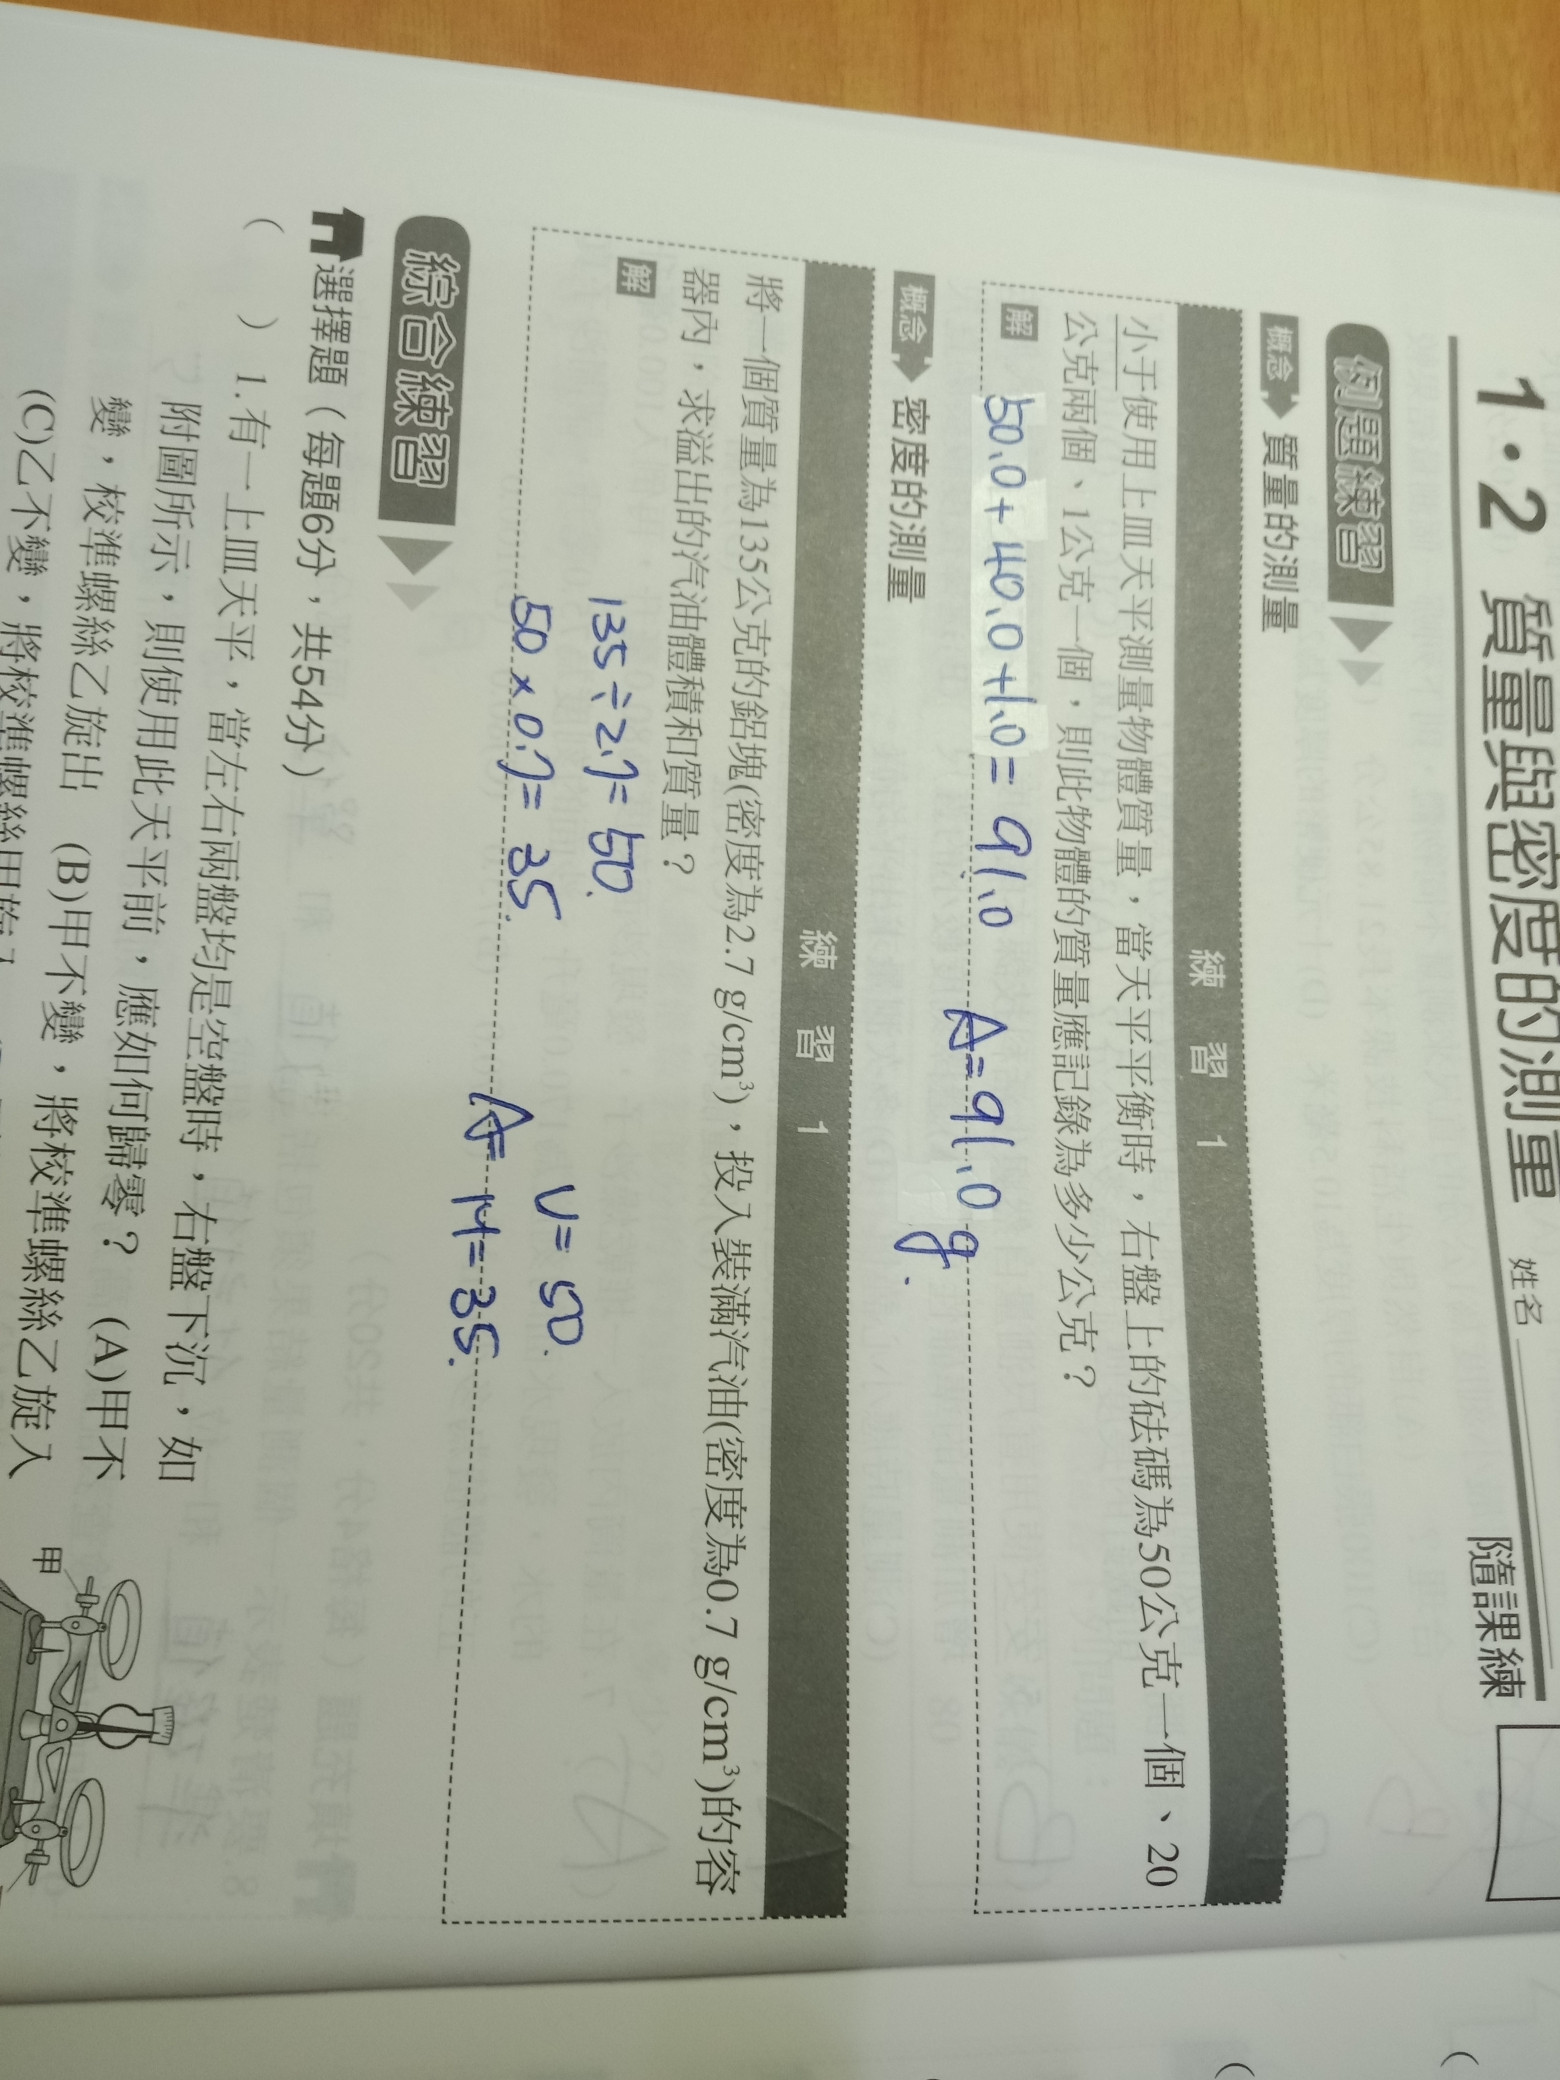 1・2 質量與密度的測量 姓名 隨課練
例題練習
概念 質量的測量
練 習 1
小于使用上皿天平測量物體質量，當天平平衡時，右盤上的砝碼為50公克一個、20
公克兩個、1公克一個，則此物體的質量應記錄為多少公克？
解
50.0+40.0+1.0=91.0 A=91.0g.
概念 密度的測量
練 習 1
將一個質量為135公克的鋁塊(密度為2.7 g/cm³)，投入裝滿汽油(密度為0.7 g/cm³)的容
器內，求溢出的汽油體積和質量？
解
135÷2.7=50. V=50.
50×0.7=35. A= M=35.
綜合練習
選擇題（每題6分，共54分）
（ ）1.有一上皿天平，當左右兩盤均是空盤時，右盤下沉，如
附圖所示，則使用此天平前，應如何歸零？ (A)甲不
變，校準螺絲乙旋出 (B)甲不變，將校準螺絲乙旋入
(C)乙不變，將校準螺絲甲旋
甲